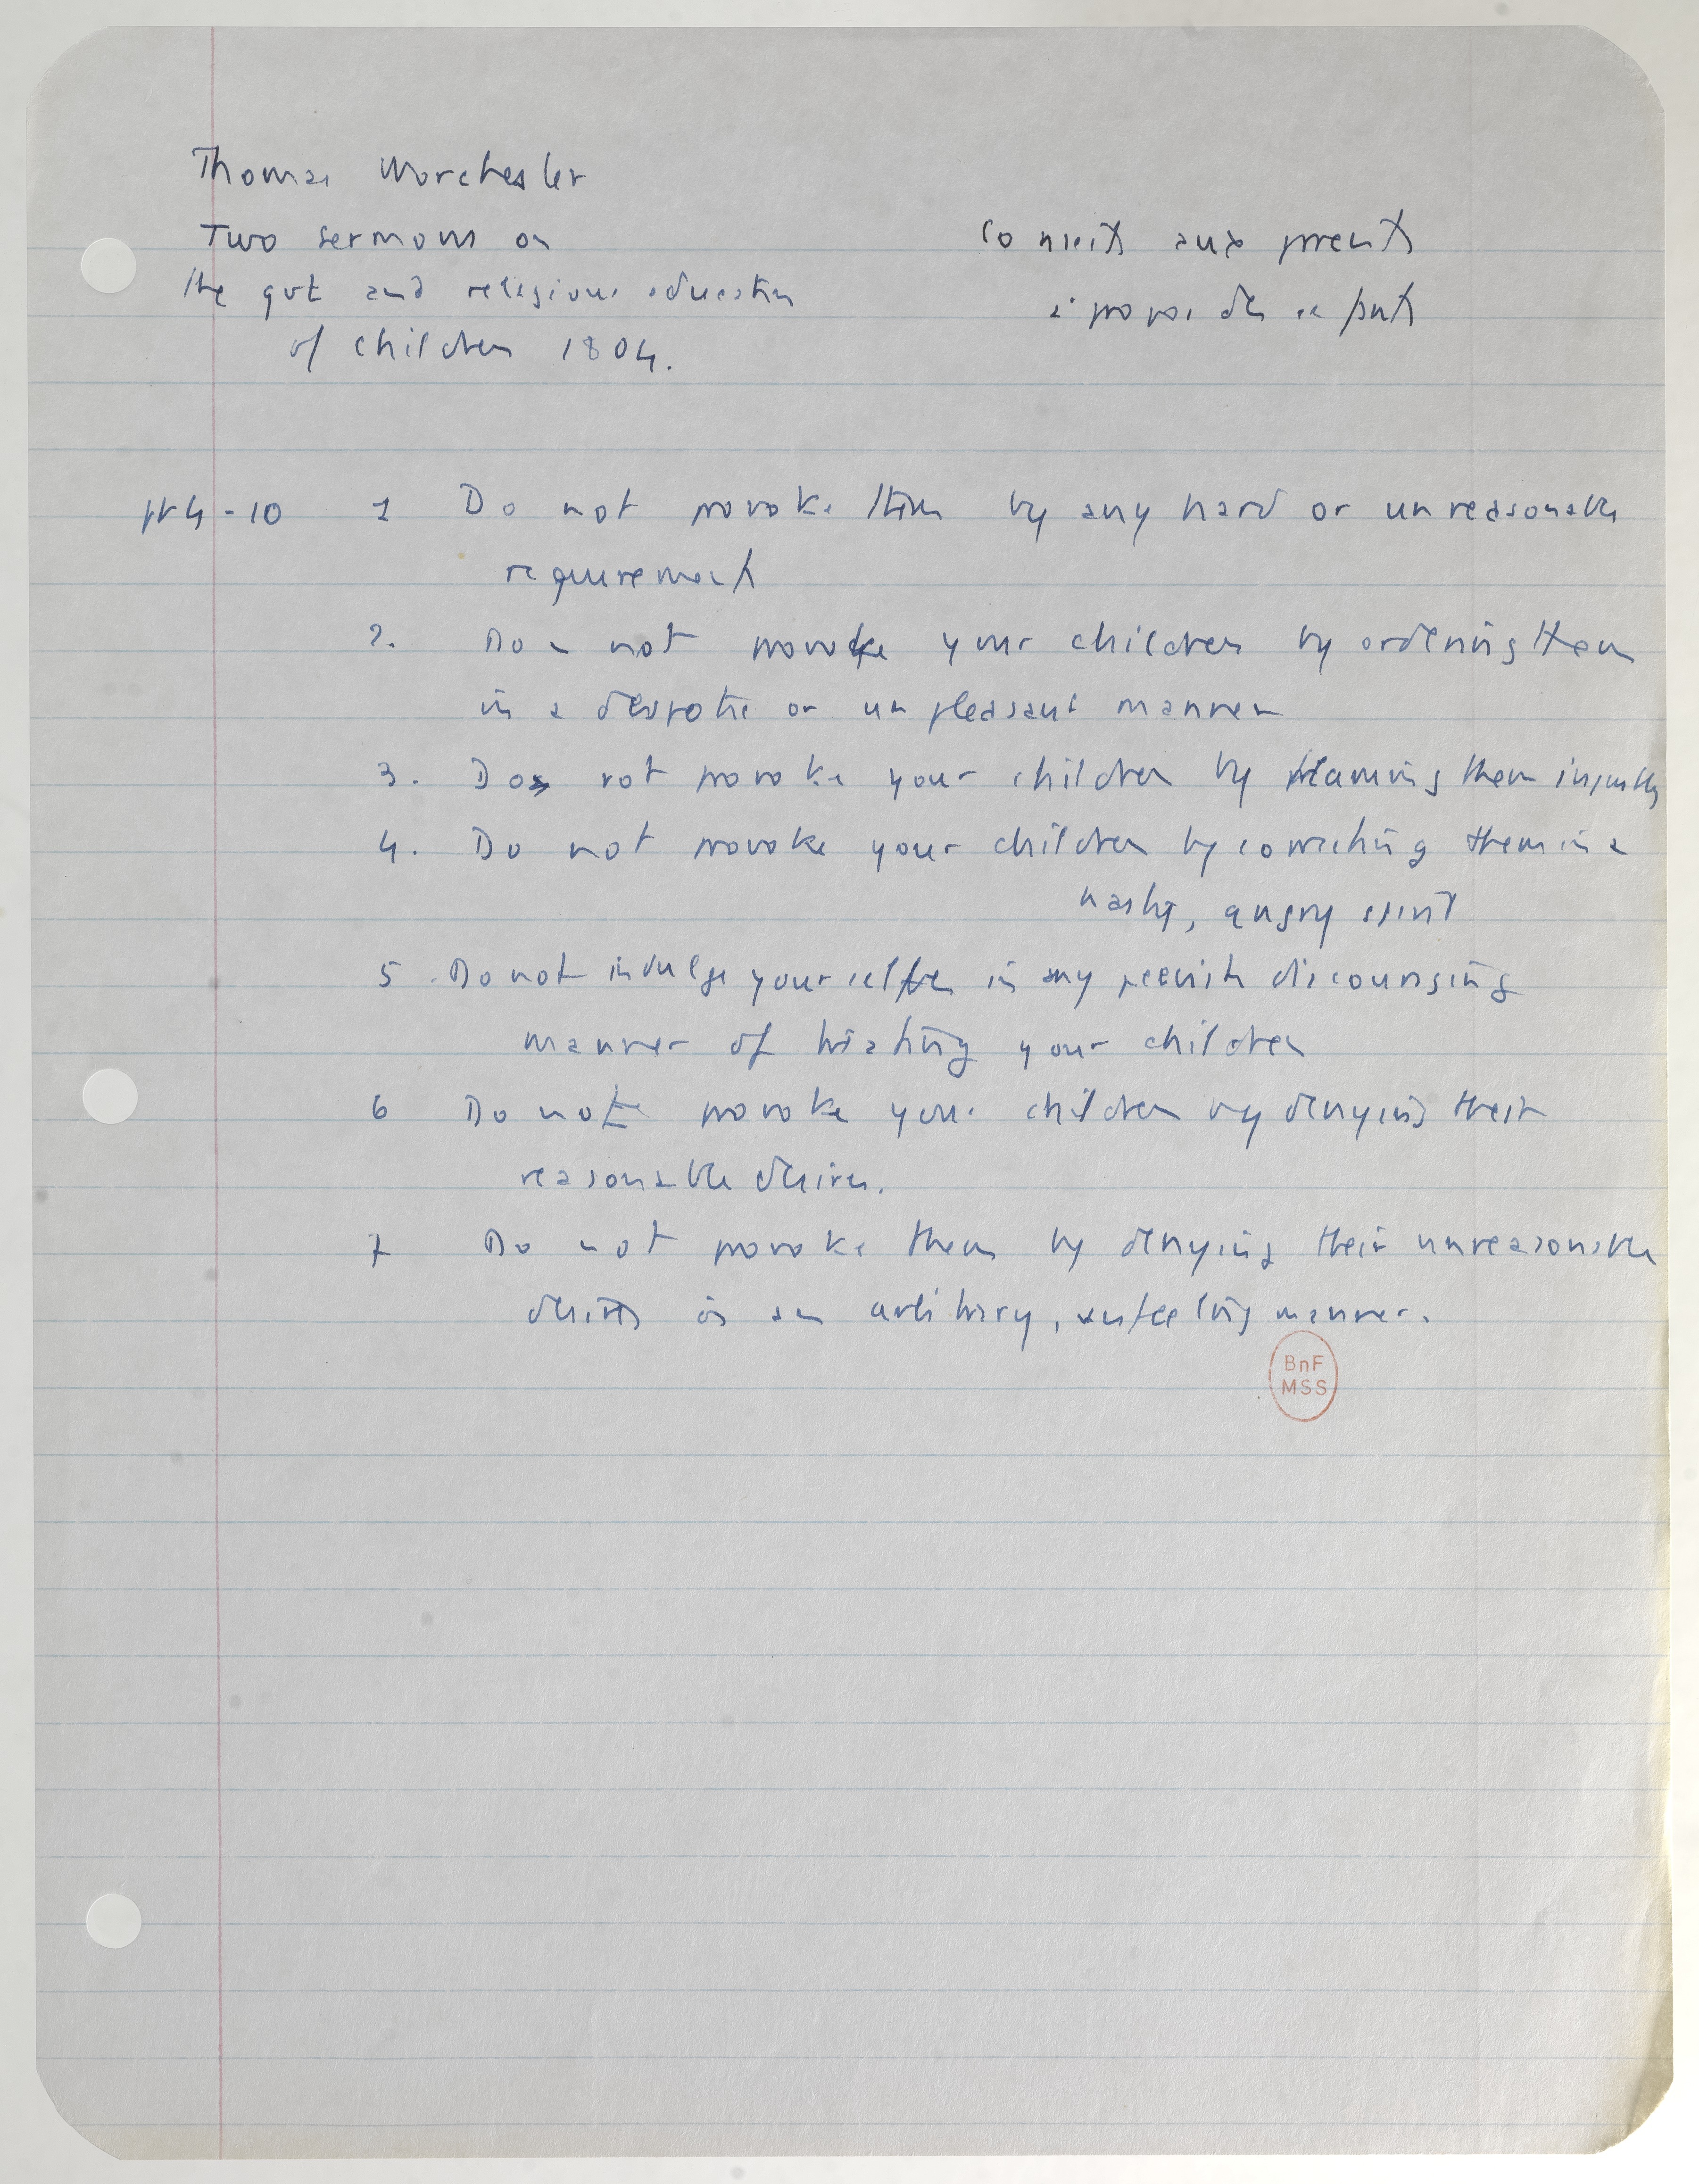 Thomas Worchester
Two sermons on
the gvt and religious education
of children 1804.
Conseils aux parents
à propos des enfants
pp 4-10 1 Do not provoke them by any hard or unreasonable
requirement
2. Do not provoke your children by ordering them
in a despotic or unpleasant manner
3. Do not provoke your children by blaming them injustly
4. Do not provoke your children by correcting them in a
hasty, angry spirit
5. Do not indulge yourselves in any peevish discouraging
manner of treating your children
6 Do not provoke your children by denying their
reasonable desires.
7 Do not provoke them by denying their unreasonable
desires in an arbitrary, unfeeling manner.
BnF
MSS